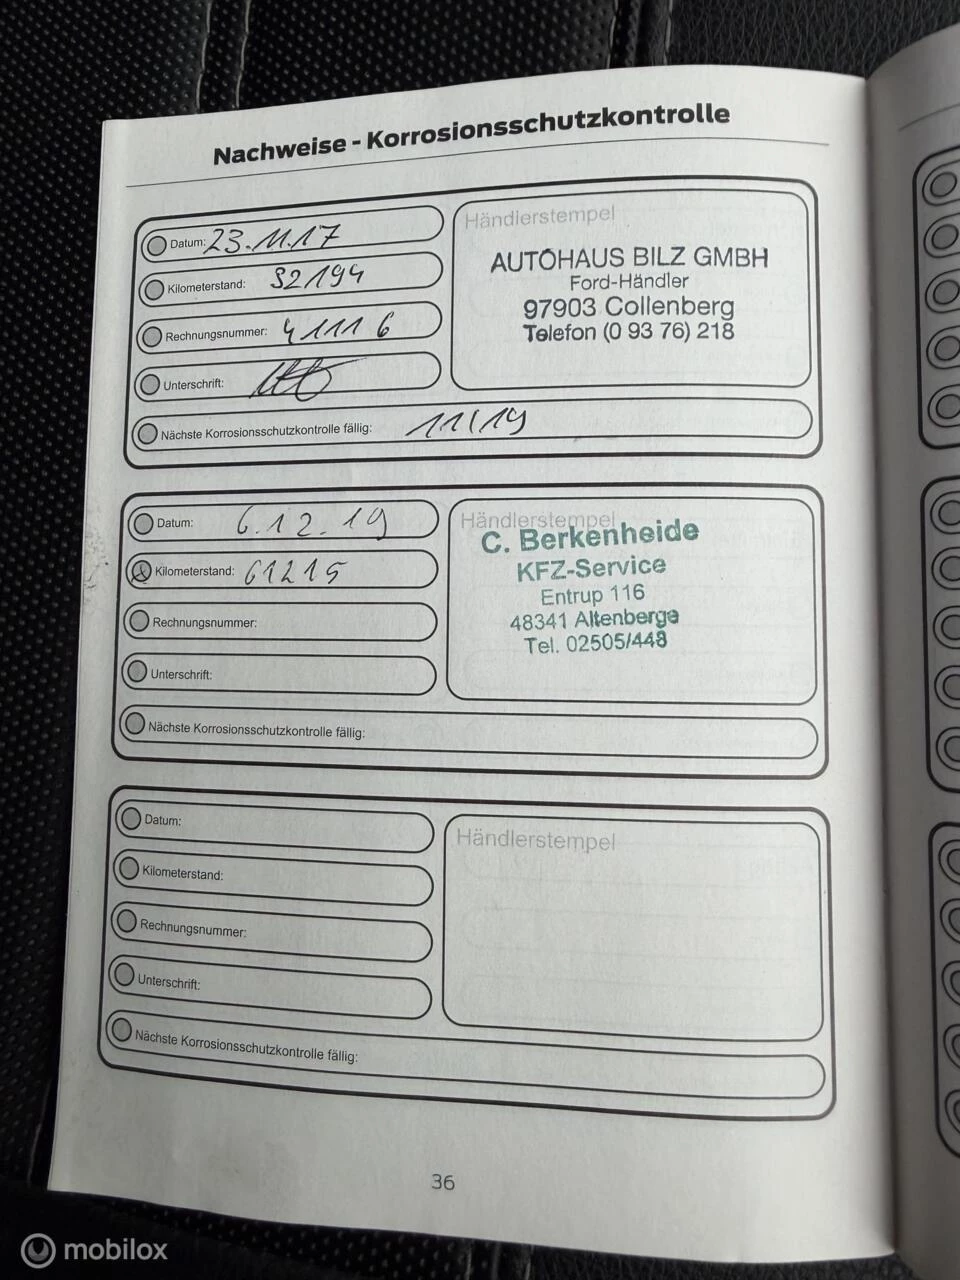 Nachweise - Korrosionsschutzkontrolle
Datum: 23.11.17
Kilometerstand: 52194
Rechnungsnummer: 41116
Unterschrift:
Nächste Korrosionsschutzkontrolle fällig: 11/19
Händlerstempel
AUTOHAUS BILZ GMBH
Ford-Händler
97903 Collenberg
Telefon (0 93 76) 218
Datum: 6.12.19
Kilometerstand: 61215
Rechnungsnummer:
Unterschrift:
Nächste Korrosionsschutzkontrolle fällig:
Händlerstempel
C. Berkenheide
KFZ-Service
Entrup 116
48341 Altenberge
Tel. 02505/448
Datum:
Kilometerstand:
Rechnungsnummer:
Unterschrift:
Nächste Korrosionsschutzkontrolle fällig:
Händlerstempel
36
mobilox